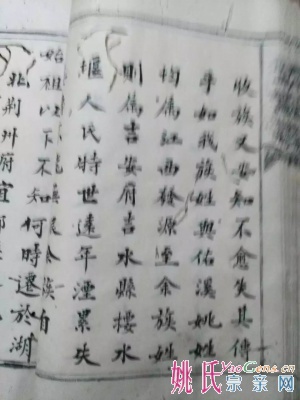 收族又安知不愈失其傳
乎如我族姓與佑溪姚姓
均屬江西發源至余族姓
則爲吉安府吉水縣摟水
樞人氏時世遠年湮累失
始祖以下不知
余族自
何時遷於湖
北荆州府宜都
姚氏宗亲网
YaoCens.cn